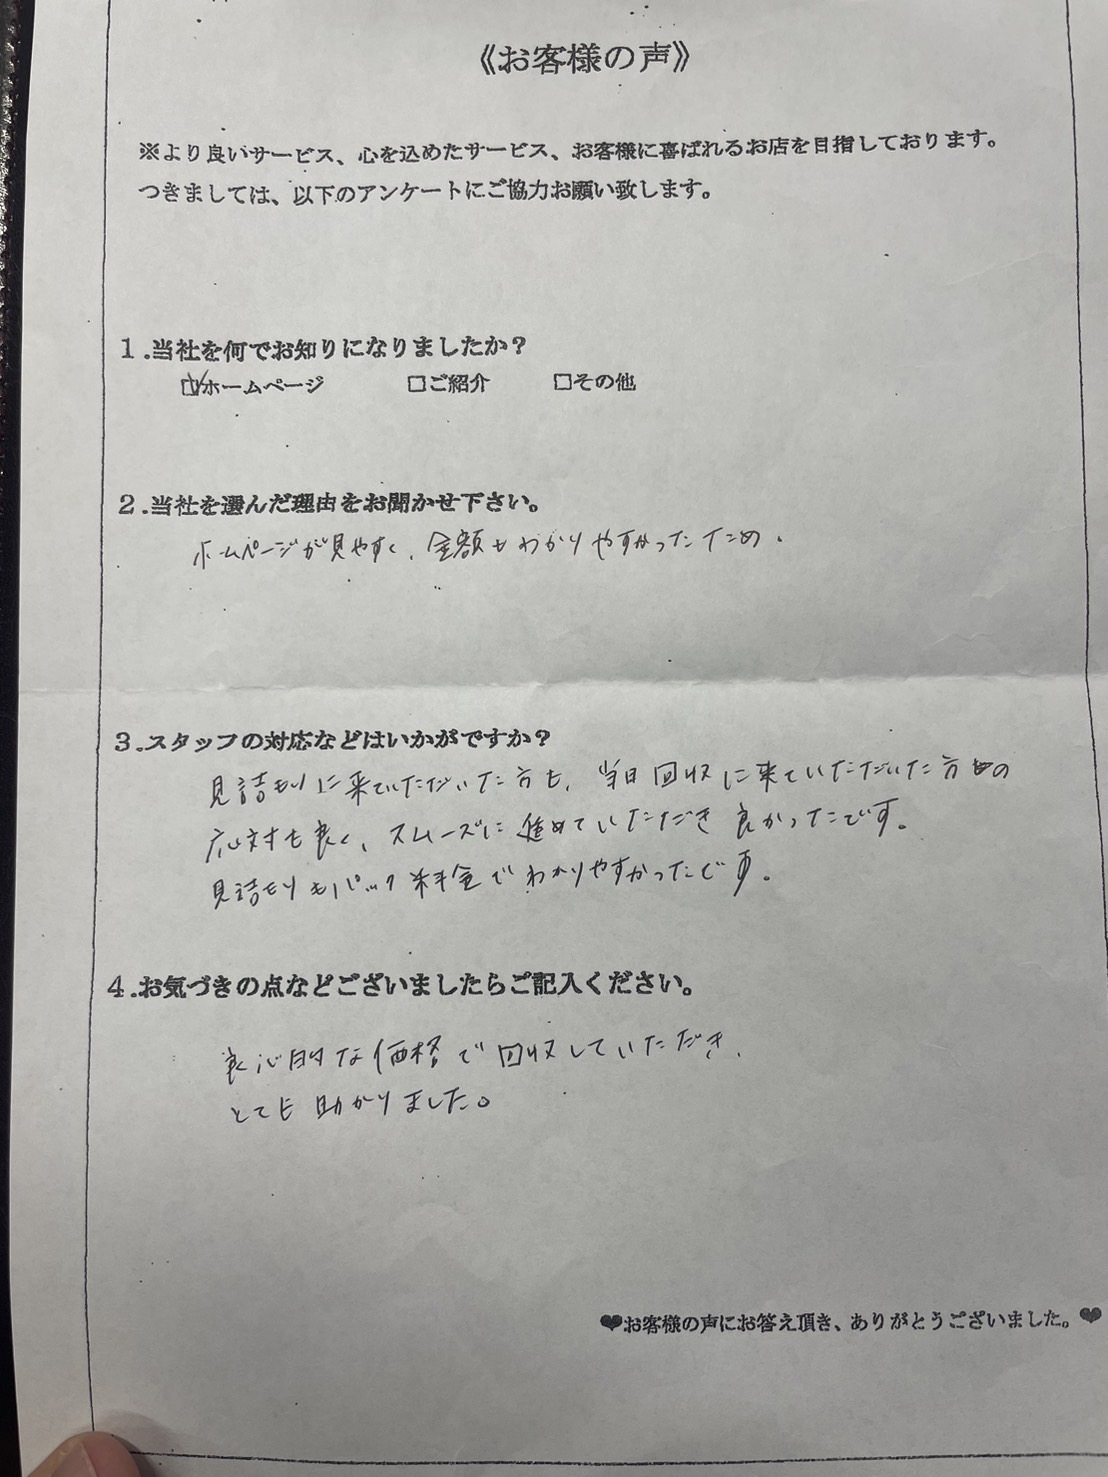 《お客様の声》
※より良いサービス、心を込めたサービス、お客様に喜ばれるお店を目指しております。
つきましては、以下のアンケートにご協力お願い致します。
1.当社を何でお知りになりましたか？
☑ホームページ □ご紹介 □その他
2.当社を選んだ理由をお聞かせ下さい。
ホームページが見やすく、金額もわかりやすかったため。
3.スタッフの対応などはいかがですか？
見積もりに来ていただいた方も、当日回収に来ていただいた方もの
応対も良く、スムーズに進めていただき良かったです。
見積もりもパック料金でわかりやすかったです。
4.お気づきの点などございましたらご記入ください。
良心的な価格で回収していただき、
とても助かりました。
♥お客様の声にお答え頂き、ありがとうございました。♥